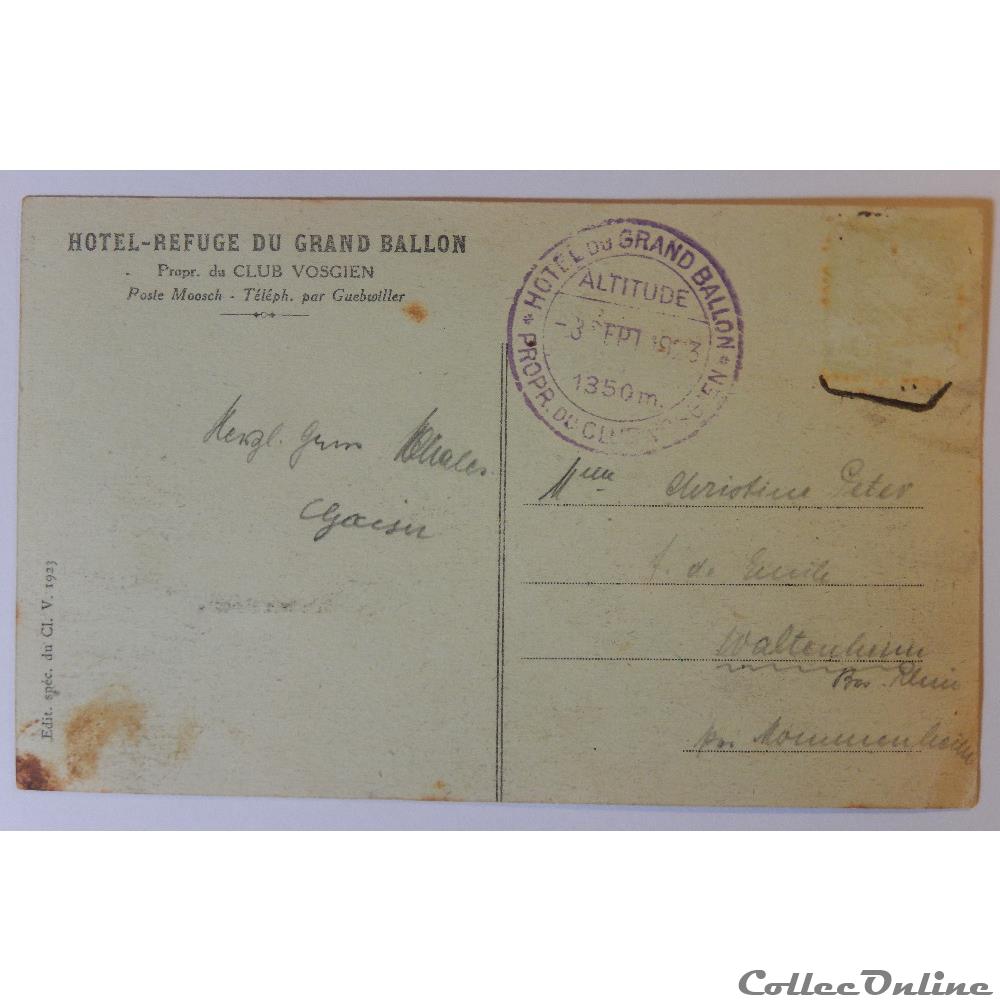 HOTEL-REFUGE DU GRAND BALLON
Propr. du CLUB VOSGIEN
Poste Moosch - Téléph. par Guebwiller
* HOTEL DU GRAND BALLON *
PROPR. DU CLUB VOSGIEN
ALTITUDE
-3 SEPT 1923
1350m.
Herzl.
Christine Peter
f. de Emile
Waltenheim
Bas-Rhin
Mommenheim
Edit. spéc. du Cl. V. 1923
CollecOnline